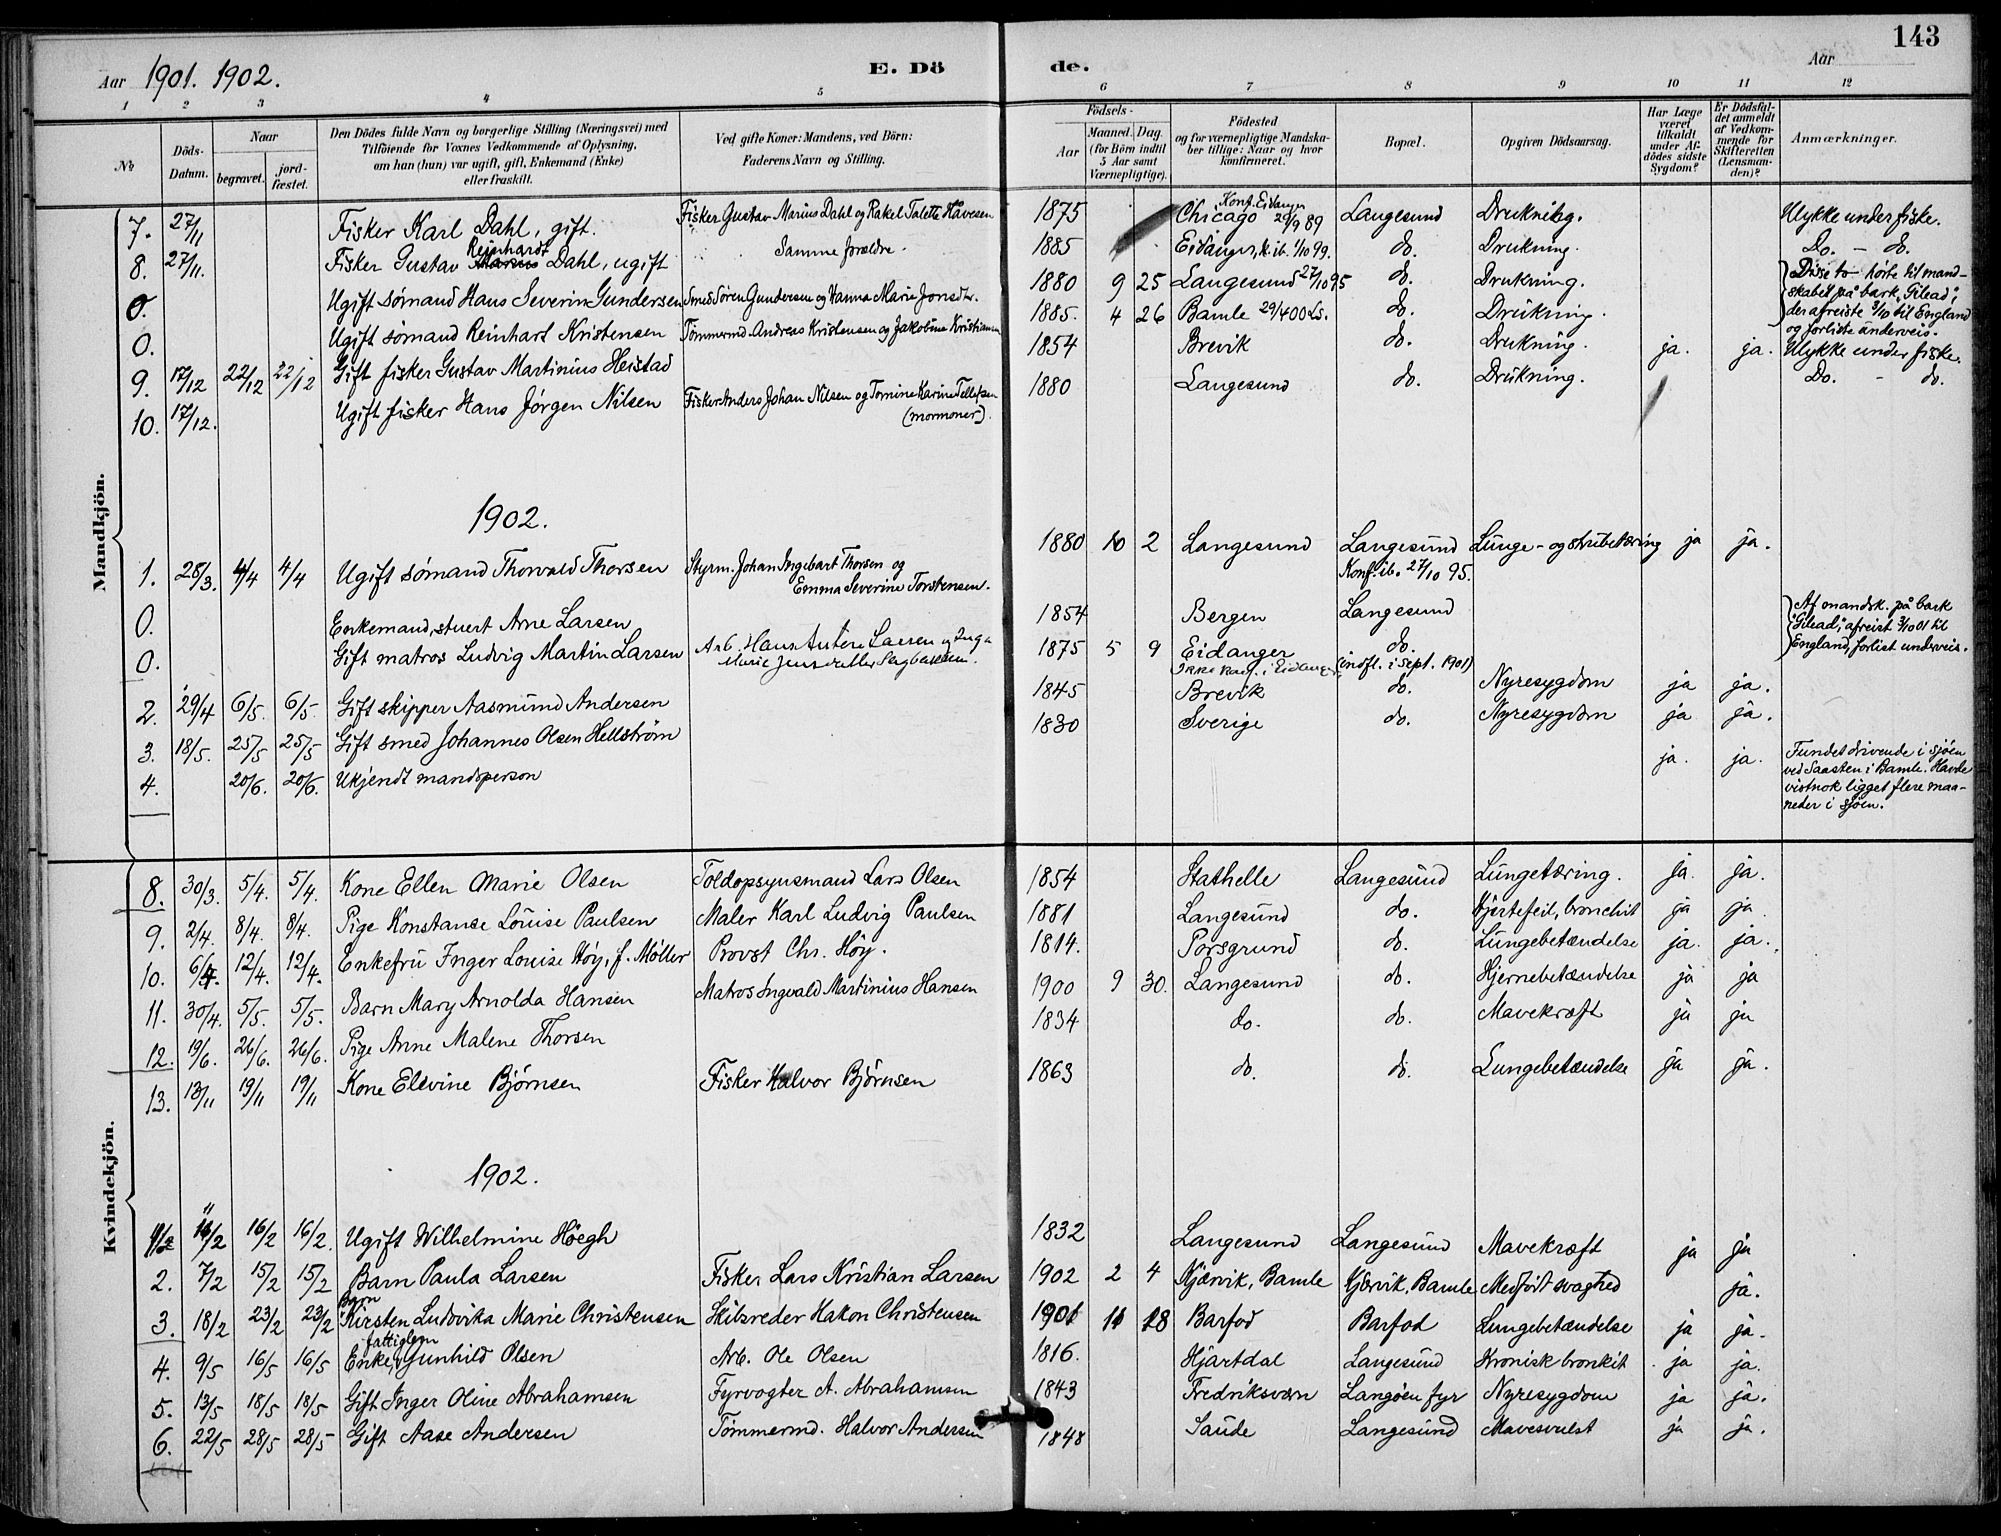 143
Aar 1901. 1902.
E. Dö de.
Aar
1 2 3 4 5 6 7 8 9 10 11 12
No
Döds-Datum.
Naar
begravet.
jord-fæstet.
Den Dödes fulde Navn og borgerlige Stilling (Næringsvei) med Tilföiende for Voxnes Vedkommende af Oplysning, om han (hun) var ugift, gift, Enkemand (Enke) eller fraskilt.
Ved gifte Koner: Mandens, ved Börn: Faderens Navn og Stilling.
Födsels-
Aar
Maaned. Dag.
(for Börn indtil 5 Aar samt Værnepligtige).
Födested og for værnepligtige Mandska-ber tillige: Naar og hvor konfirmeret.
Bopæl.
Opgiven Dödsaarsag.
Har Læge været tilkaldt under Af-dödes sidste Sygdom?
Er Dödsfal-det anmeldt af Vedkom-mende for Skifteretten (Lensman-den)?
Anmærkninger.
Mandkjön.
7. 27/11 Fisker Karl Dahl, gift. Fisker Gustav Marius Dahl og Rakel Talette Håvesen 1875 Chicago Konf. Eidanger 29/9 89 Langesund Drukning. Ulykke under fiske.
8. 27/11. Fisker Gustav Reinhardt Dahl, ugift Samme forældre. 1885 Eidanger, k. ib. 1/10 99. do. Drukning. Do. - do.
0. Ugift sømand Hans Severin Gundersen Smed Søren Gundersen og Hanna Marie Jonsdtr. 1880 9 25 Langesund 27/10 95 do. Drukning. Disse to hørte til mand-skabet på bark "Gilead", der afreiste 3/10 til England og forliste underveis.
0. Ugift sømand Reinhart Kristensen Tømmermd. Andreas Kristensen og Jakobine Kristiansen 1885. 4 26 Bamle 29/4 00 Ls. do. Drukning.
9. 17/12 22/12 22/12 Gift fisker Gustav Martinius Heistad 1854 Brevik do. Drukning. ja. ja. Ulykke under fiske.
10. 17/12. Ugift fisker Hans Jörgen Nilsen Fisker Anders Johan Nilsen og Tomine Karine Tellefsen (mormoner). 1880 Langesund do. Drukning. Do. - do.
1902.
1. 28/3. 4/4 4/4 Ugift sömand Thorvald Thorsen Styrm. Johan Ingebart Thorsen og Emma Severine Torstensen. 1880 10 2 Langesund Langesund Konf. ib. 27/10 95. Lunge- og strubetæring ja ja.
0. Enkemand, stuert Arne Larsen 1854 Bergen Langesund Af mandsk. på bark "Gilead", afreist 3/10 01 til England, forlist underveis.
0. Gift matros Ludvig Martin Larsen Arb. Hans Larsen og Inga Marie 1875 5 9 Eidanger Ikke konf. i Eidanger do. (indfl. i Sept. 1901)
2. 29/4 6/5. 6/5. Gift skipper Aasmund Andersen 1845 Brevik do. Nyresygdom ja ja.
3. 18/5. 25/5 25/5 Gift smed Johannes Olsen Hellström 1830 Sverige do. Nyresygdom ja ja.
4. 20/6. 20/6. Ukjendt mandsperson ja. ja. Fundet drivende i sjöen ved Saasten i Bamle. Havde vistnok ligget flere maa-neder i sjöen.
Kvindekjön.
8. 30/3. 5/4. 5/4. Kone Ellen Marie Olsen Toldopsynsmand Lars Olsen 1854 Stathelle Langesund Lungetæring. ja. ja.
9. 2/4. 8/4. 8/4. Pige Konstanse Louise Paulsen Maler Karl Ludvig Paulsen 1881 Langesund do. Hjertefeil, bronchit ja ja
10. 6/4. 12/4. 12/4. Enkefru Inger Louise Høy, f. Møller Provst Chr. Høy. 1814. Porsgrund do. Lungebetændelse ja. ja.
11. 30/4. 5/5. 5/5. Barn Mary Arnolda Hansen Matros Ingvald Martinius Hansen 1900 9 30. Langesund do. Hjernebetændelse ja ja
12. 19/6. 26/6. 26/6. Pige Anne Malene Thorsen 1834 do. do. Mavekræft ja ja
13. 13/11 19/11 19/11 Kone Elevine Bjørnsen Fisker Halvor Bjørnsen 1863 do. do. Lungebetændelse ja ja.
1902.
1. 11/2 16/2 16/2. Ugift Wilhelmine Höegh 1832 Langesund Langesund Mavekræft ja ja
2. 7/2 15/2 15/2 Barn Paula Larsen Fisker Lars Kristian Larsen 1902 2 4 Kjærvik, Bamle Kjærvik, Bamle Medfödt svaghed ja.
3. 18/2 23/2 23/2 Barn Kirsten Ludovika Marie Christensen Skibsreder Hakon Christensen 1901 11 18 Barfod Barfod Lungebetændelse ja ja.
4. 9/5 16/5 16/5 Enke, fattiglem Gunhild Olsen Arb. Ole Olsen 1816. Hjartdal Langesund Kronisk bronkit ja ja.
5. 13/5 18/5 18/5 Gift Inger Oline Abrahamsen Fyrvogter A. Abrahamsen 1843 Fredriksværn Langöen fyr Nyresygdom ja ja.
6. 22/5 28/5 28/5 Gift Aase Andersen Tömmermd. Halvor Andersen 1848 Saude Langesund Mavesvulst ja ja.